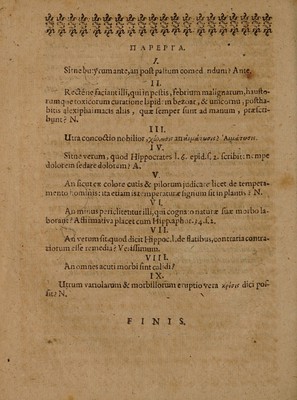 ΠΑΡΕΡΓΑ.
I.
Sitne butyrum ante, an post pastum comedendum? Ante.
II.
Recténe faciant illi, qui in pestis, febrium malignarum, hausto-
rumque toxicorum curatione lapidi bezoar, & unicornu, postha-
bitis alexipharmacis aliis, quæ semper sunt ad manum, præscri-
bunt? N.
III.
Utra concoctio nobilior, χύλωσις an αἱμάτωσις? Αἱμάτωσις.
IV.
Sitne verum, quod Hippocrates l. 6. epid. s. 2. scribit: nempe
dolorem sedare dolorem? A.
V.
An sicut ex colore cutis & pilorum judicare licet de tempera-
mento hominis: ita etiam
VI.
An minus periclitentur illi, qui cognato naturæ suæ morbo la-
borant? Affirmativa placet cum Hipp. aphor. 34. s. 2.
VII.
An verum sit, quod dicit Hippoc. l. de flatibus, contraria contra-
riorum esse remedia? Verissimum.
VIII.
An omnes acuti morbi sint calidi?
IX.
Utrum variolarum & morbillorum eruptio vera κρίσις dici pos-
sit? N.
FINIS.